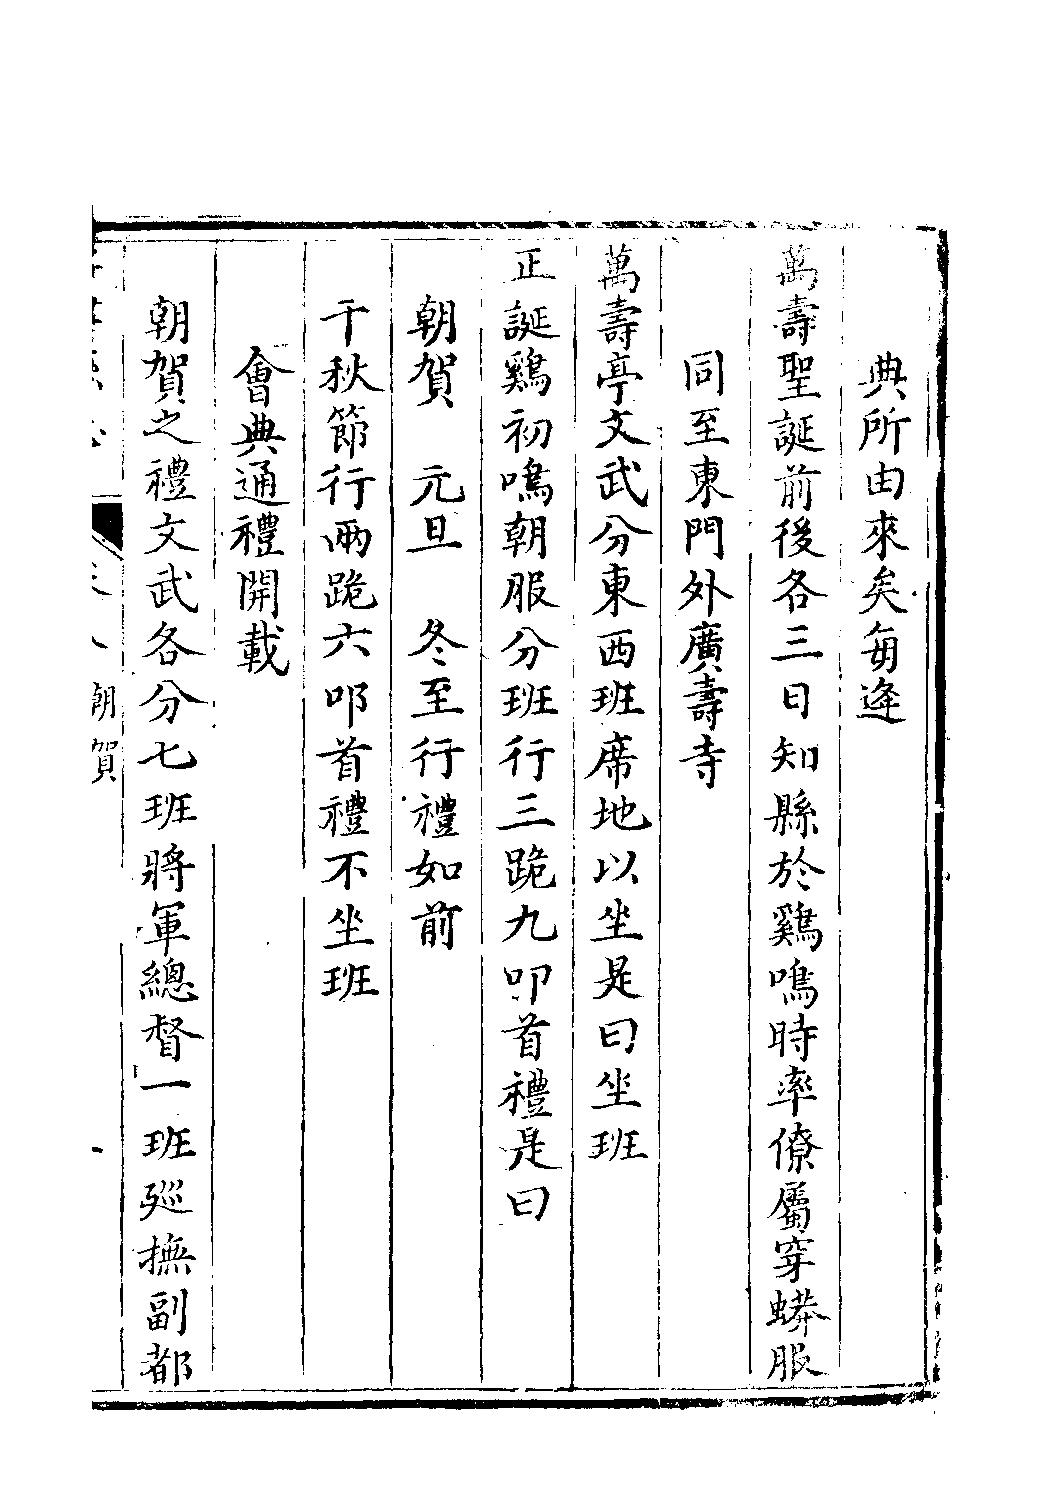 典所由來矣每逢
萬壽聖誕前後各三日知縣於鷄鳴時率僚屬穿蟒服
同至東門外廣壽寺
萬壽亭文武分東西班席地以坐是曰坐班
正誕鷄初鳴朝服分班行三跪九叩首禮是曰
朝賀　元旦　冬至行禮如前
千秋節行兩跪六叩首禮不坐班
會典通禮開載
朝賀之禮文武各分七班將軍總督一班廵撫副都
朝賀